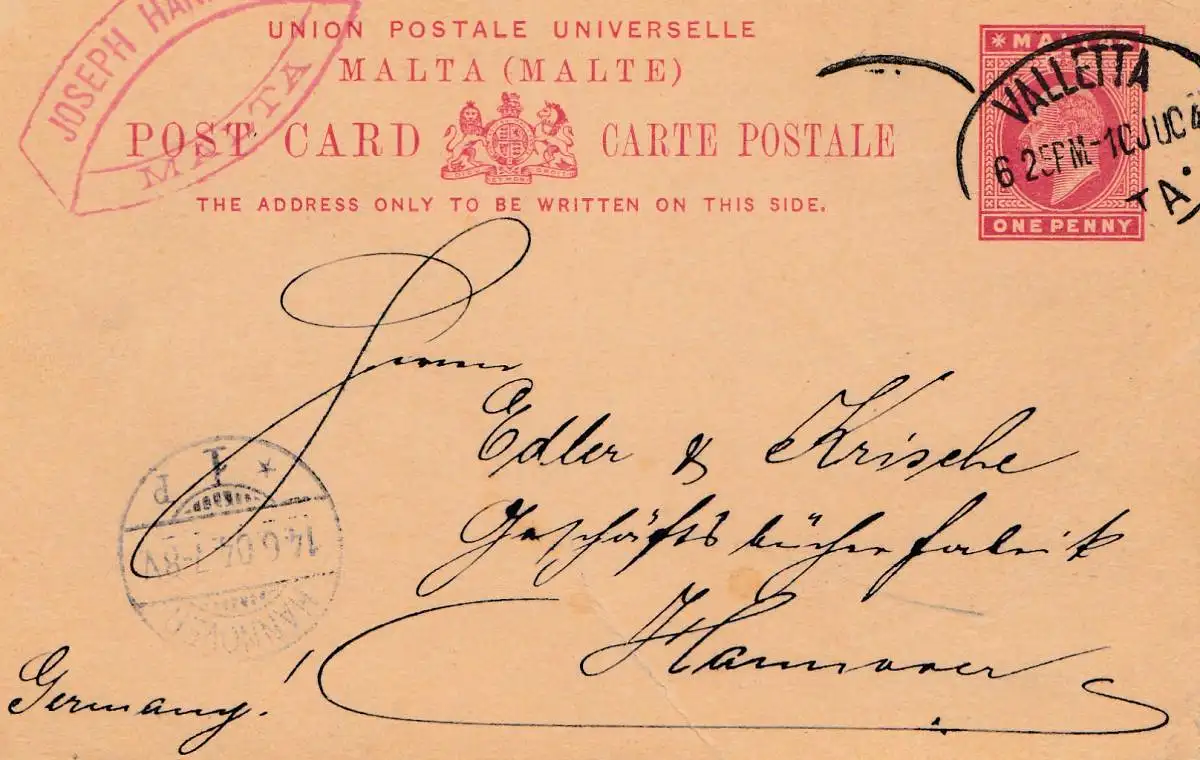 JOSEPH
MALTA
UNION POSTALE UNIVERSELLE
MALTA (MALTE)
POST CARD CARTE POSTALE
THE ADDRESS ONLY TO BE WRITTEN ON THIS SIDE.
MALTA
VALLETTA
6 25PM-10JU04
TA.
ONE PENNY
Herrn
Edler & Krische
Geschäftsbücherfabrik
Hannover
Germany!
1 P
14.6.04. 7-8V
HANNOVER